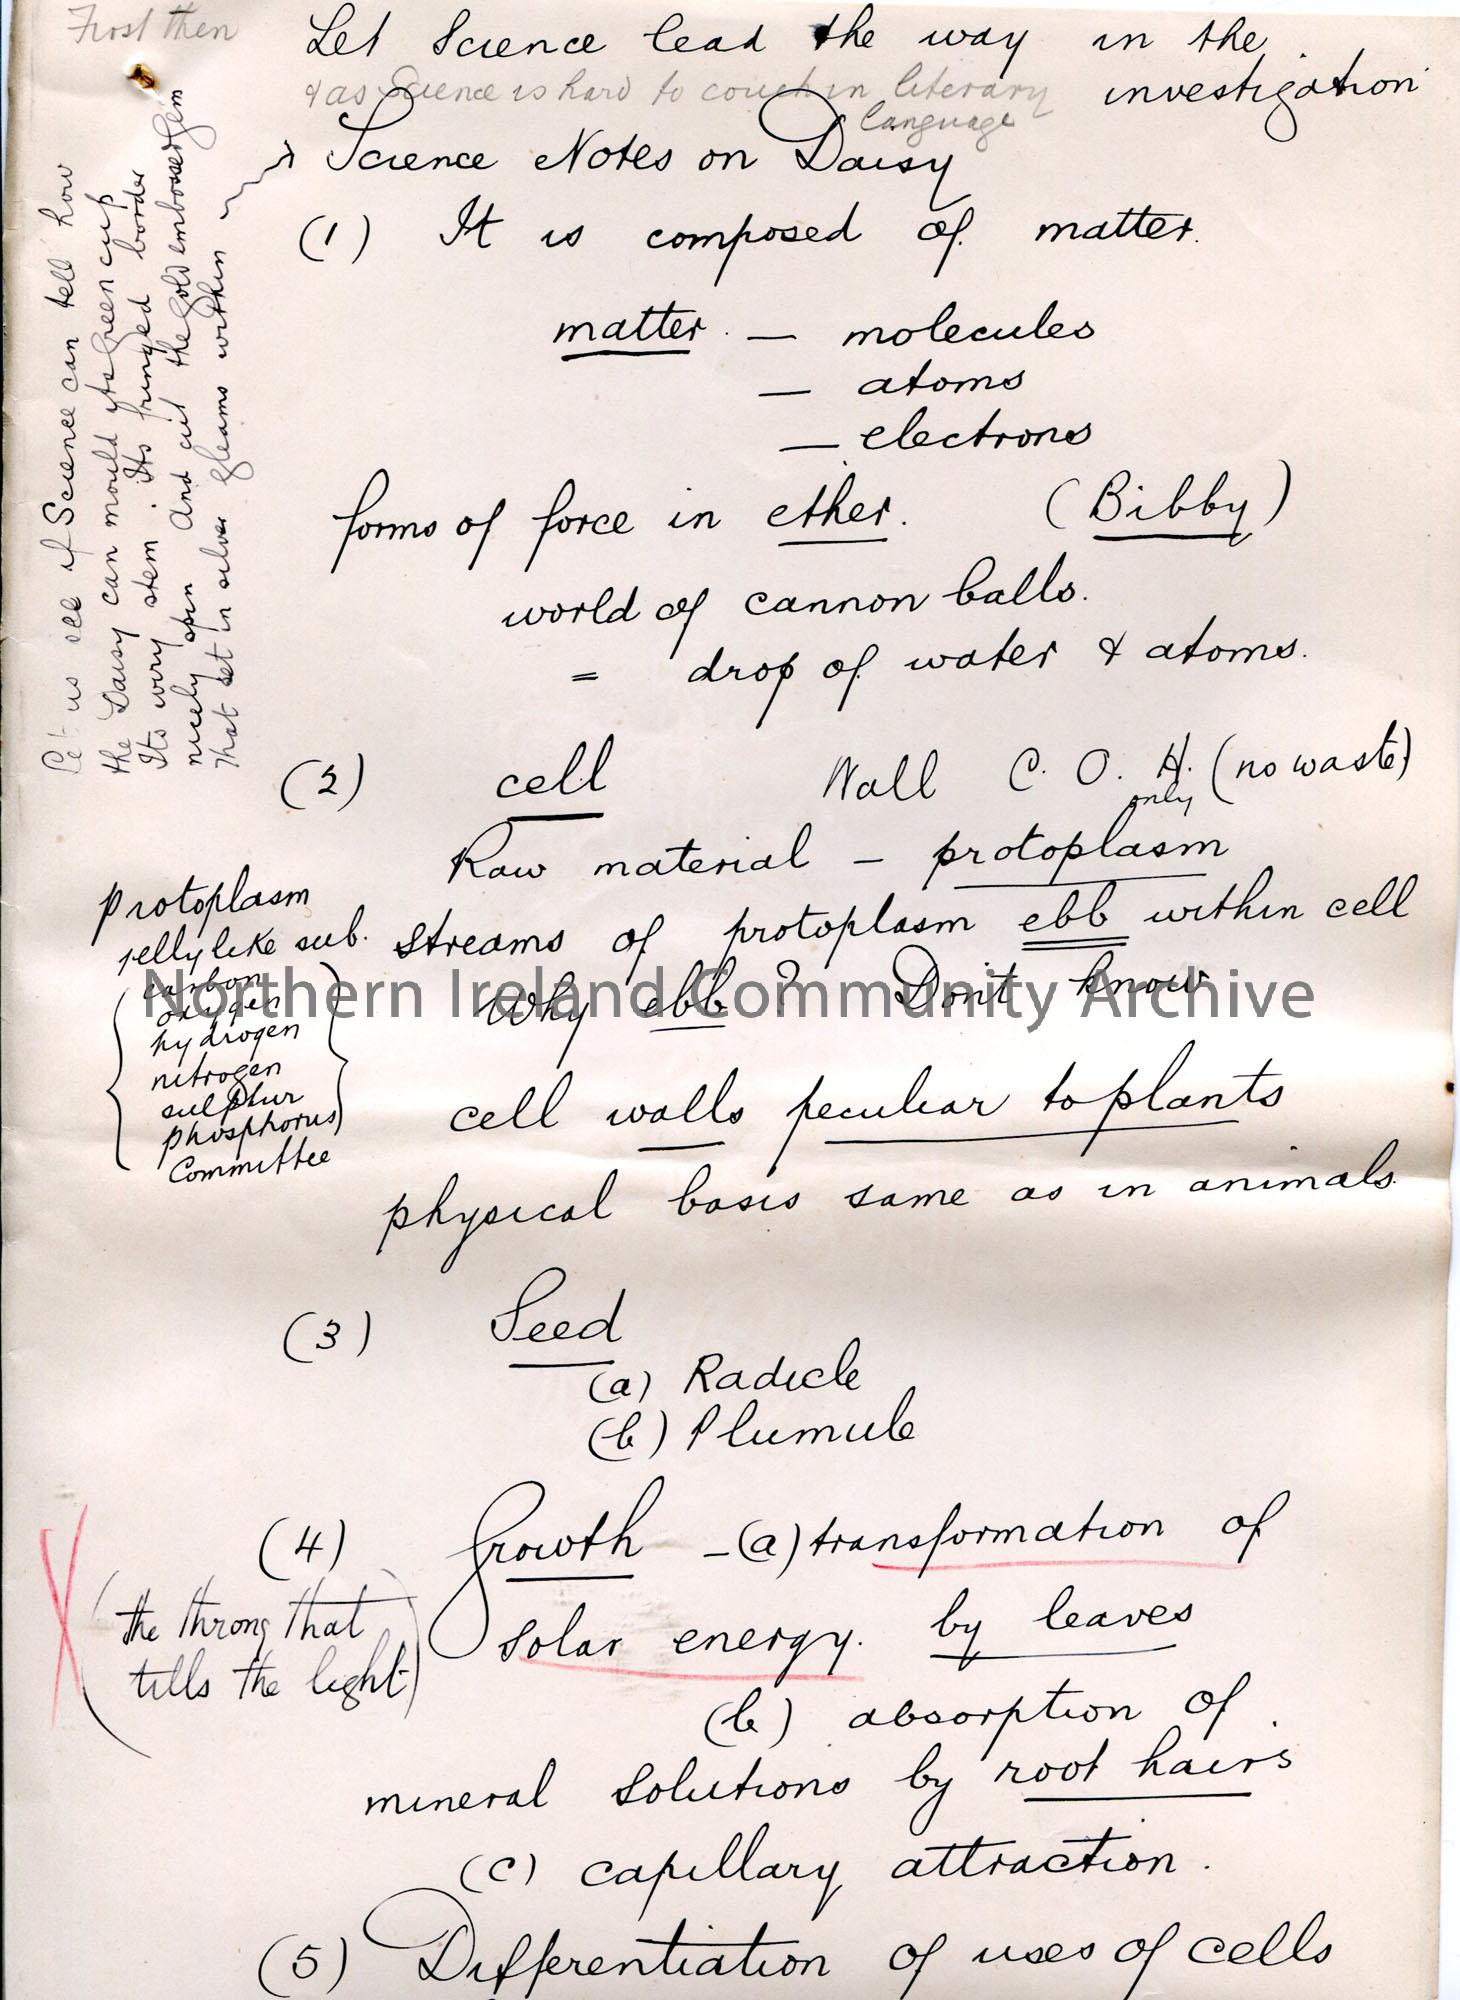 Frost then
Let Science lead the way in the
investigation
& as Science is hard to couch in literary
language
Science Notes on Daisy
Let us see if Science can tell how
the Daisy can mould its green cup
Its wiry stem. Its fringed border
nicely spin And cut the gold embossed gem
That set in silver gleams within
(1) It is composed of matter.
matter. — molecules
— atoms
— electrons
forms of force in ether. (Bibby)
world of cannon balls.
= drop of water & atoms.
(2) cell Wall C. O. H. (no waste)
only
Raw material — protoplasm
Protoplasm
jelly like sub.
(carbon
oxygen
hydrogen
nitrogen
sulphur
phosphorus)
Committee
streams of protoplasm ebb within cell
Why ebb? Dont know
Northern Ireland Community Archive
cell walls peculiar to plants
physical basis same as in animals.
(3) Seed
(a) Radicle
(b) Plumule
(4) Growth — (a) transformation of
solar energy. by leaves
(the throng that
tills the light)
(b) absorption of
mineral solutions by root hairs
(c) capillary attraction.
(5) Differentiation of uses of cells